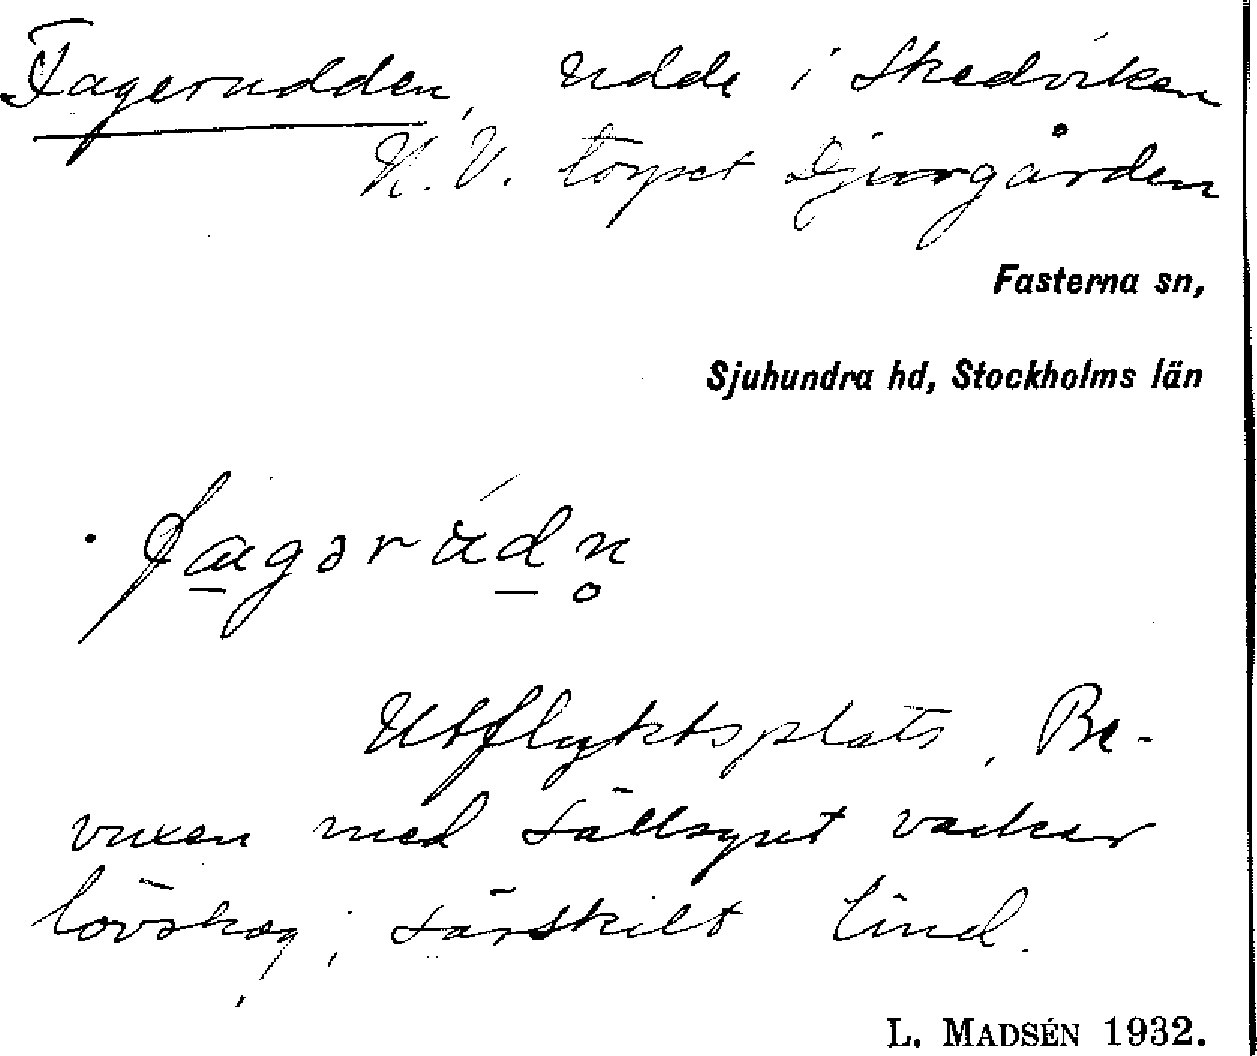 Fagerudden, udde i Skedviken
N.V. torpet Djurgården
Fasterna sn,
Sjuhundra hd, Stockholms län
fa̲gərúd̲n̥
Utflyktsplats. Be-
vuxen med sällsynt vacker
lövskog, särskilt lind.
L. MADSÉN 1932.